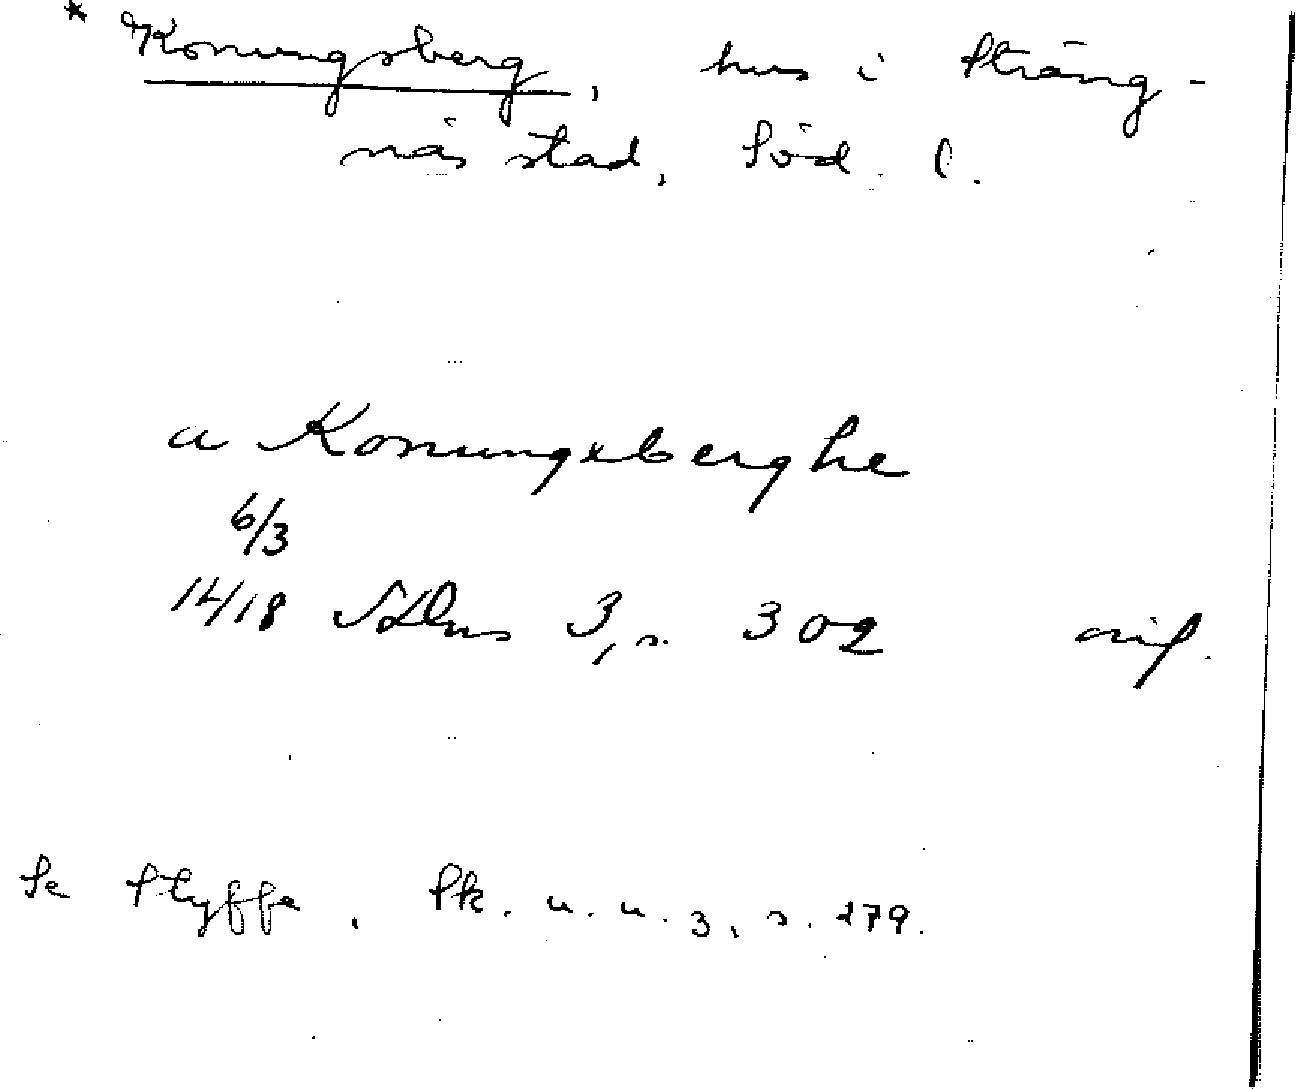 * Konungsberg, hus i Sträng-
näs stad, Söd. l.
a Konungxberghe
6/3
1418 SDns 3, s. 302 orig.
Se Styffe, Sk. u. u. 3, s. 279.